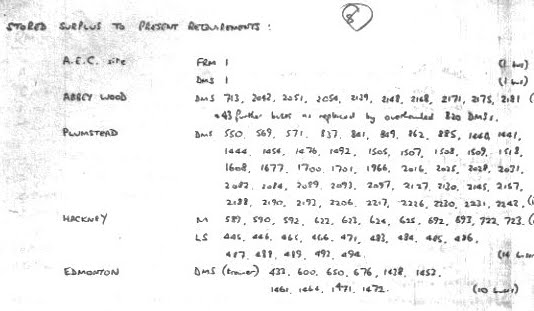 8
STORED SURPLUS TO PRESENT REQUIREMENTS :
A.E.C. site FRM 1 (1 bus)
DMS 1 (1 bus)
ABBEY WOOD DMS 713, 2042, 2051, 2054, 2129, 2148, 2168, 2171, 2175, 2181 (
+43 further buses as replaced by overhauled 820 DMSs.
PLUMSTEAD DMS 550, 569, 571, 837, 841, 849, 862, 885, 1440, 1441,
1444, 1454, 1476, 1492, 1505, 1507, 1508, 1509, 1518,
1608, 1677, 1700, 1701, 1966, 2016, 2025, 2028, 2031,
2082, 2084, 2089, 2093, 2097, 2127, 2130, 2145, 2157,
2188, 2190, 2193, 2206, 2217, 2226, 2230, 2231, 2242, (
HACKNEY M 589, 590, 592, 622, 623, 624, 625, 692, 693, 722, 723. (
LS 445, 446, 465, 466, 471, 483, 484, 485, 486,
487, 488, 489, 492, 494. (14 buses)
EDMONTON DMS (trainer) 433, 600, 650, 676, 1438, 1453,
1461, 1464, 1471, 1472. (10 buses)